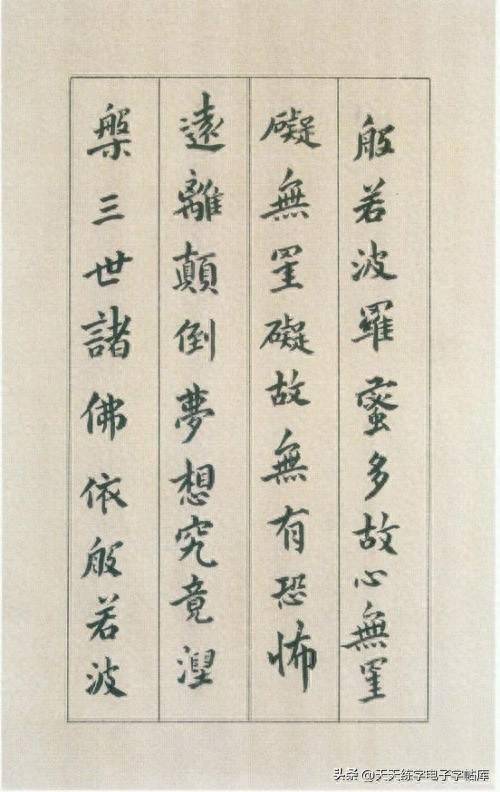 般若波羅蜜多故心無罣
礙無罣礙故無有恐怖
遠離顛倒夢想究竟涅
槃三世諸佛依般若波
头条 @天天练字电子字帖库